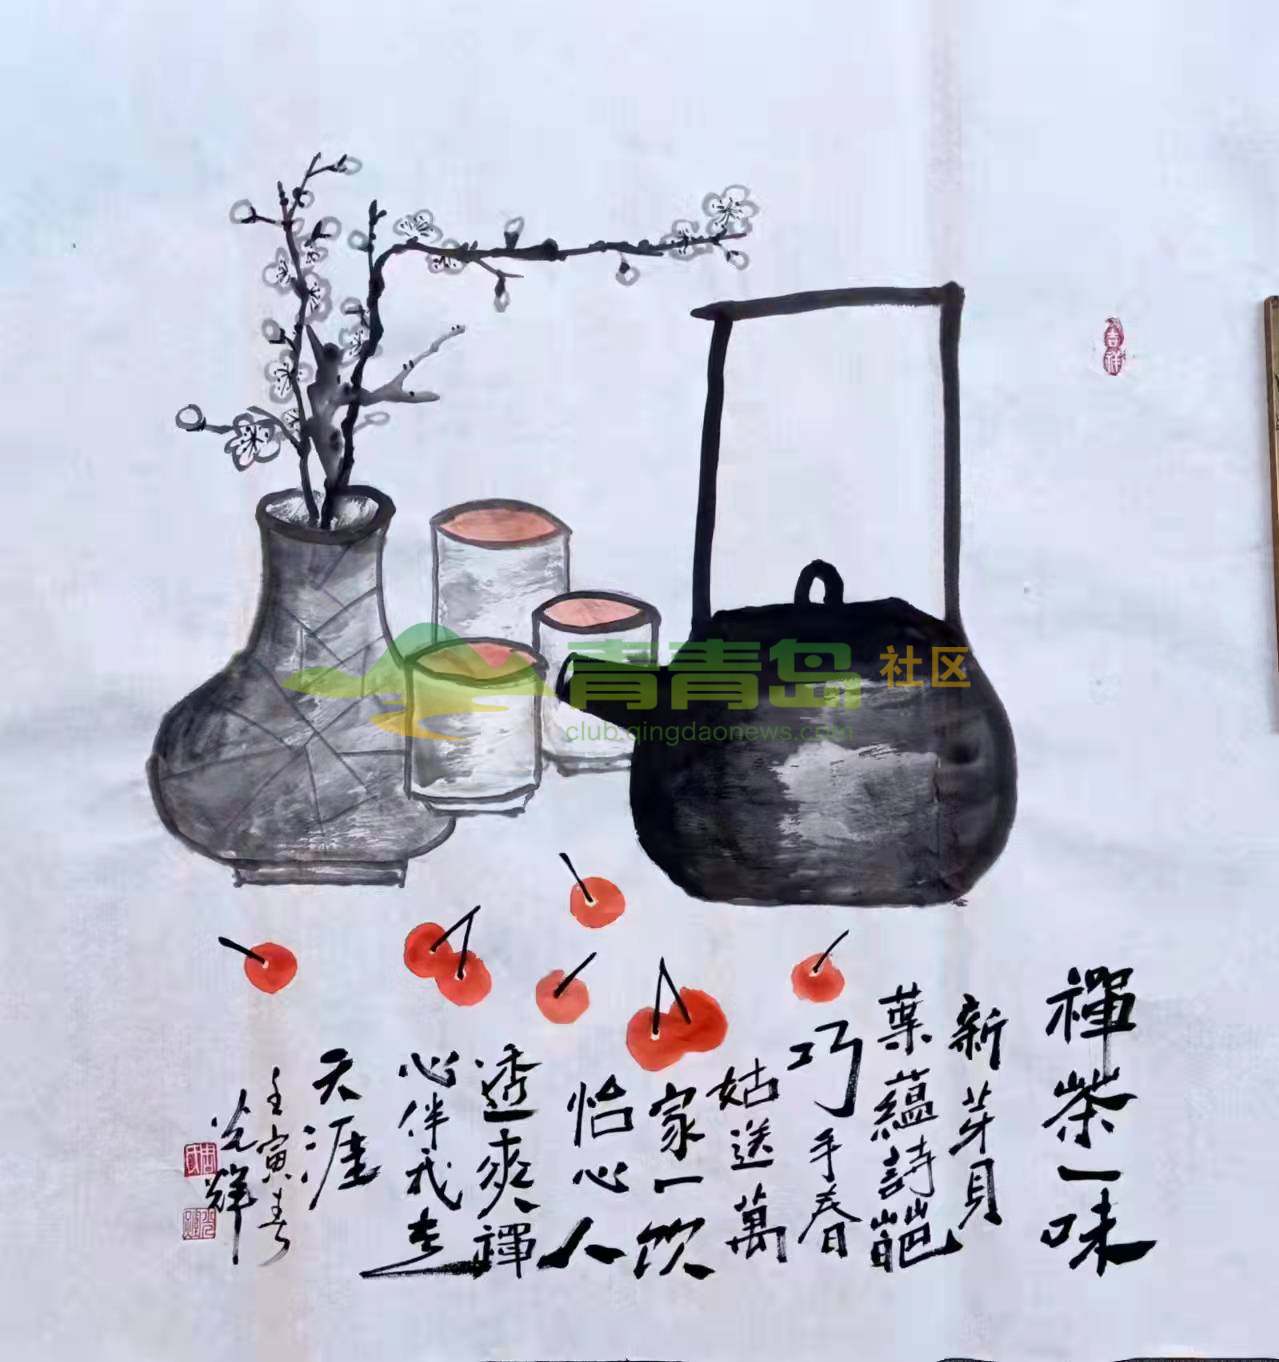 禪茶一味
新芽貝
葉蘊詩葩
巧手春
姑送萬
家一飲
怡心人
透爽禪
心伴我走
天涯
壬寅春
光輝
吉祥
青青岛 社区
club.qingdaonews.com